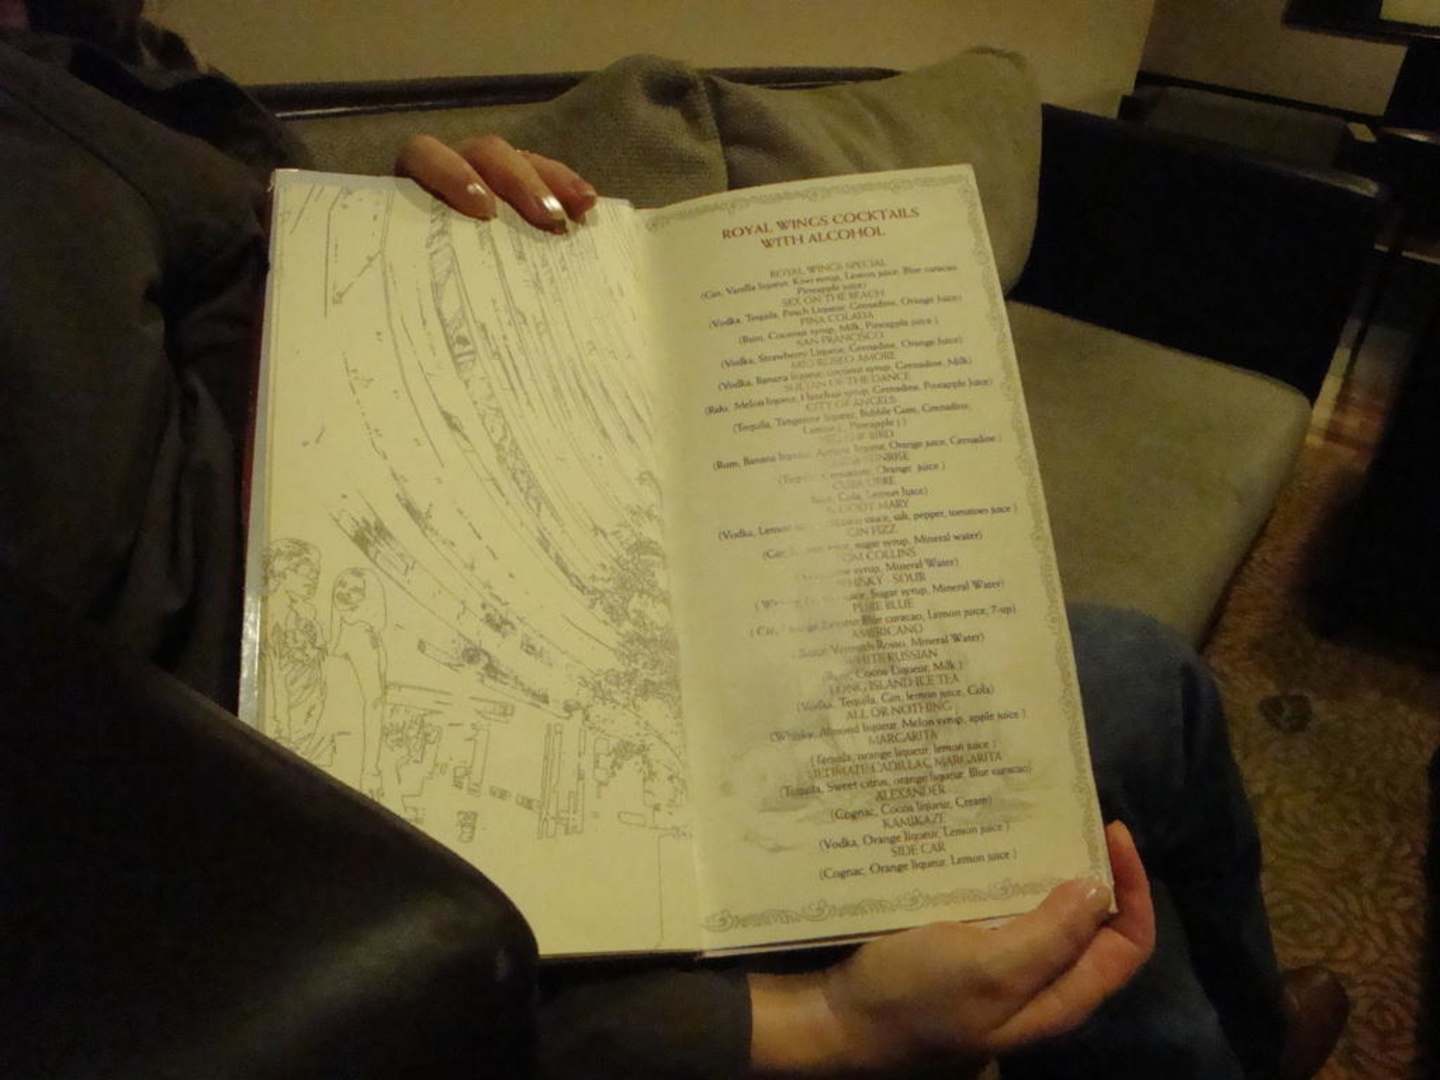 ROYAL WINGS COCKTAILS
WITH ALCOHOL
ROYAL WINGS SPECIAL
(Gin, Vanilla liqueur, Kiwi syrup, Lemon juice, Blue curacao,
Pineapple juice)
SEX ON THE BEACH
(Vodka, Tequila, Peach Liqueur, Grenadine, Orange Juice)
PINA COLADA
(Rum, Coconut syrup, Milk, Pineapple juice )
SAN FRANCISCO
(Vodka, Strawberry Liqueur, Grenadine, Orange Juice)
AMORE
(Vodka, Banana liqueur, coconut syrup, Grenadine, Milk)
SULTAN OF THE DANCE
(Raki, Melon liqueur, syrup, Grenadine, Pineapple Juice)
CITY OF ANGELS
(Tequila, Tangerine liqueur, Bubble Gum, Grenadine,
Pineapple j )
BIRD
(Rum, Banana liqueur, liqueur, Orange juice, Grenadine )
SUNRISE
Grenadine, Orange juice )
LIBRE
Cola, Lemon Juice)
BLOODY MARY
(Vodka, Lemon sauce, salt, pepper, tomatoes juice )
GIN FIZZ
sugar syrup, Mineral water)
TOM COLLINS
syrup, Mineral Water)
WHISKY SOUR
Sugar syrup, Mineral Water)
PURE BLUE
Blue curacao, Lemon juice, 7-up)
AMERICANO
Vermuth Rosso, Mineral Water)
WHITE RUSSIAN
Cocoa Liqueur, Milk )
LONG ISLAND ICE TEA
(Vodka, Tequila, Gin, lemon juice, Cola)
ALL OR NOTHING
(Whisky, Almond liqueur, Melon syrup, apple juice )
MARGARITA
(Tequila, orange liqueur, lemon juice )
ULTIMATE CADILLAC MARGARITA
(Tequila, Sweet citrus, orange liqueur, Blue curacao)
ALEXANDER
(Cognac, Cocoa liqueur, Cream)
KAMIKAZE
(Vodka, Orange liqueur, Lemon juice )
SIDE CAR
(Cognac, Orange liqueur, Lemon juice )